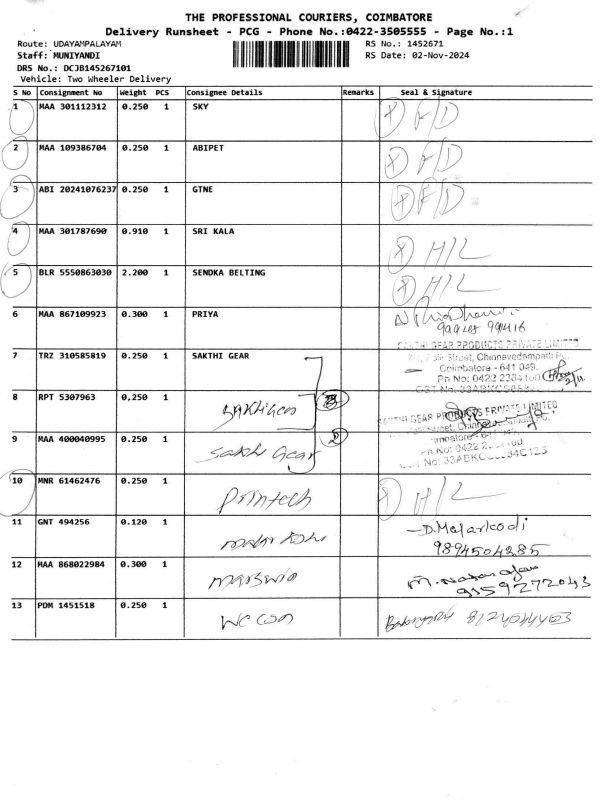 THE PROFESSIONAL COURIERS, COIMBATORE
Delivery Runsheet - PCG - Phone No.:0422-3505555 - Page No.:1
Route: UDAYAMPALAYAM RS No.: 1452671
Staff: MUNIYANDI RS Date: 02-Nov-2024
DRS No.: DCJB145267101
Vehicle: Two Wheeler Delivery
S No Consignment No Weight PCS Consignee Details Remarks Seal & Signature
1 MAA 301112312 0.250 1 SKY F/D
2 MAA 109386704 0.250 1 ABIPET F/D
3 ABI 20241076237 0.250 1 GTNE F/D
4 MAA 301787690 0.910 1 SRI KALA H/L
5 BLR 5550863030 2.200 1 SENDKA BELTING H/L
6 MAA 867109923 0.300 1 PRIYA
SAKTHI GEAR PRODUCTS PRIVATE LIMITED
7 TRZ 310585819 0.250 1 SAKTHI GEAR
Street, Chinnavedampatti
Coimbatore - 641 049.
Ph No: 0422
8 RPT 5307963 0,250 1 Sakthi Gear
SAKTHI GEAR PRODUCTS PRIVATE LIMITED
9 MAA 400040995 0.250 1 Sakthi Gear
10 MNR 61462476 0.250 1 Printech H/L
11 GNT 494256 0.120 1 D. Malarkodi
9894504285
12 MAA 868022984 0.300 1 M. Natarajan
9159272043
13 PDM 1451518 0.250 1